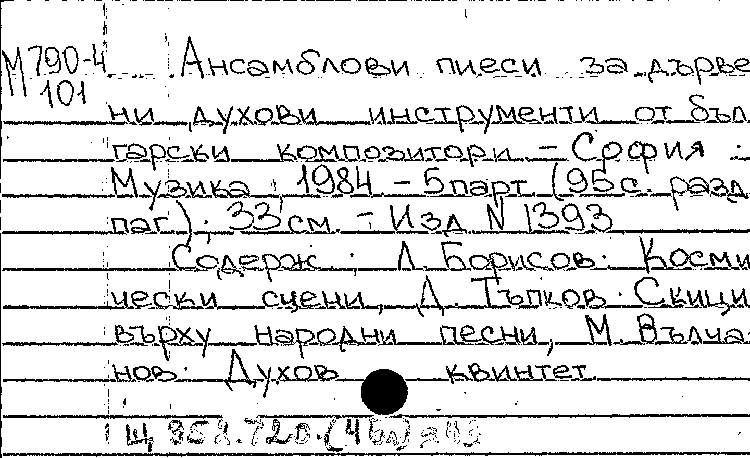 М 790-4 Ансамблови пиеси за дърве
101
ни духови инструменти от бъл
гарски композитори. – София :
Музика, 1984. – 5 парт (95 с. разд
паг.) ; 33 см. – Изд N 1393
Содерж.: Л. Борисов. Косми
чески сцени, Д. Тъпков. Скици
върху народни песни, М. Вълча-
нов. Духов квинтет.
Щ 958.720.(4Бл)